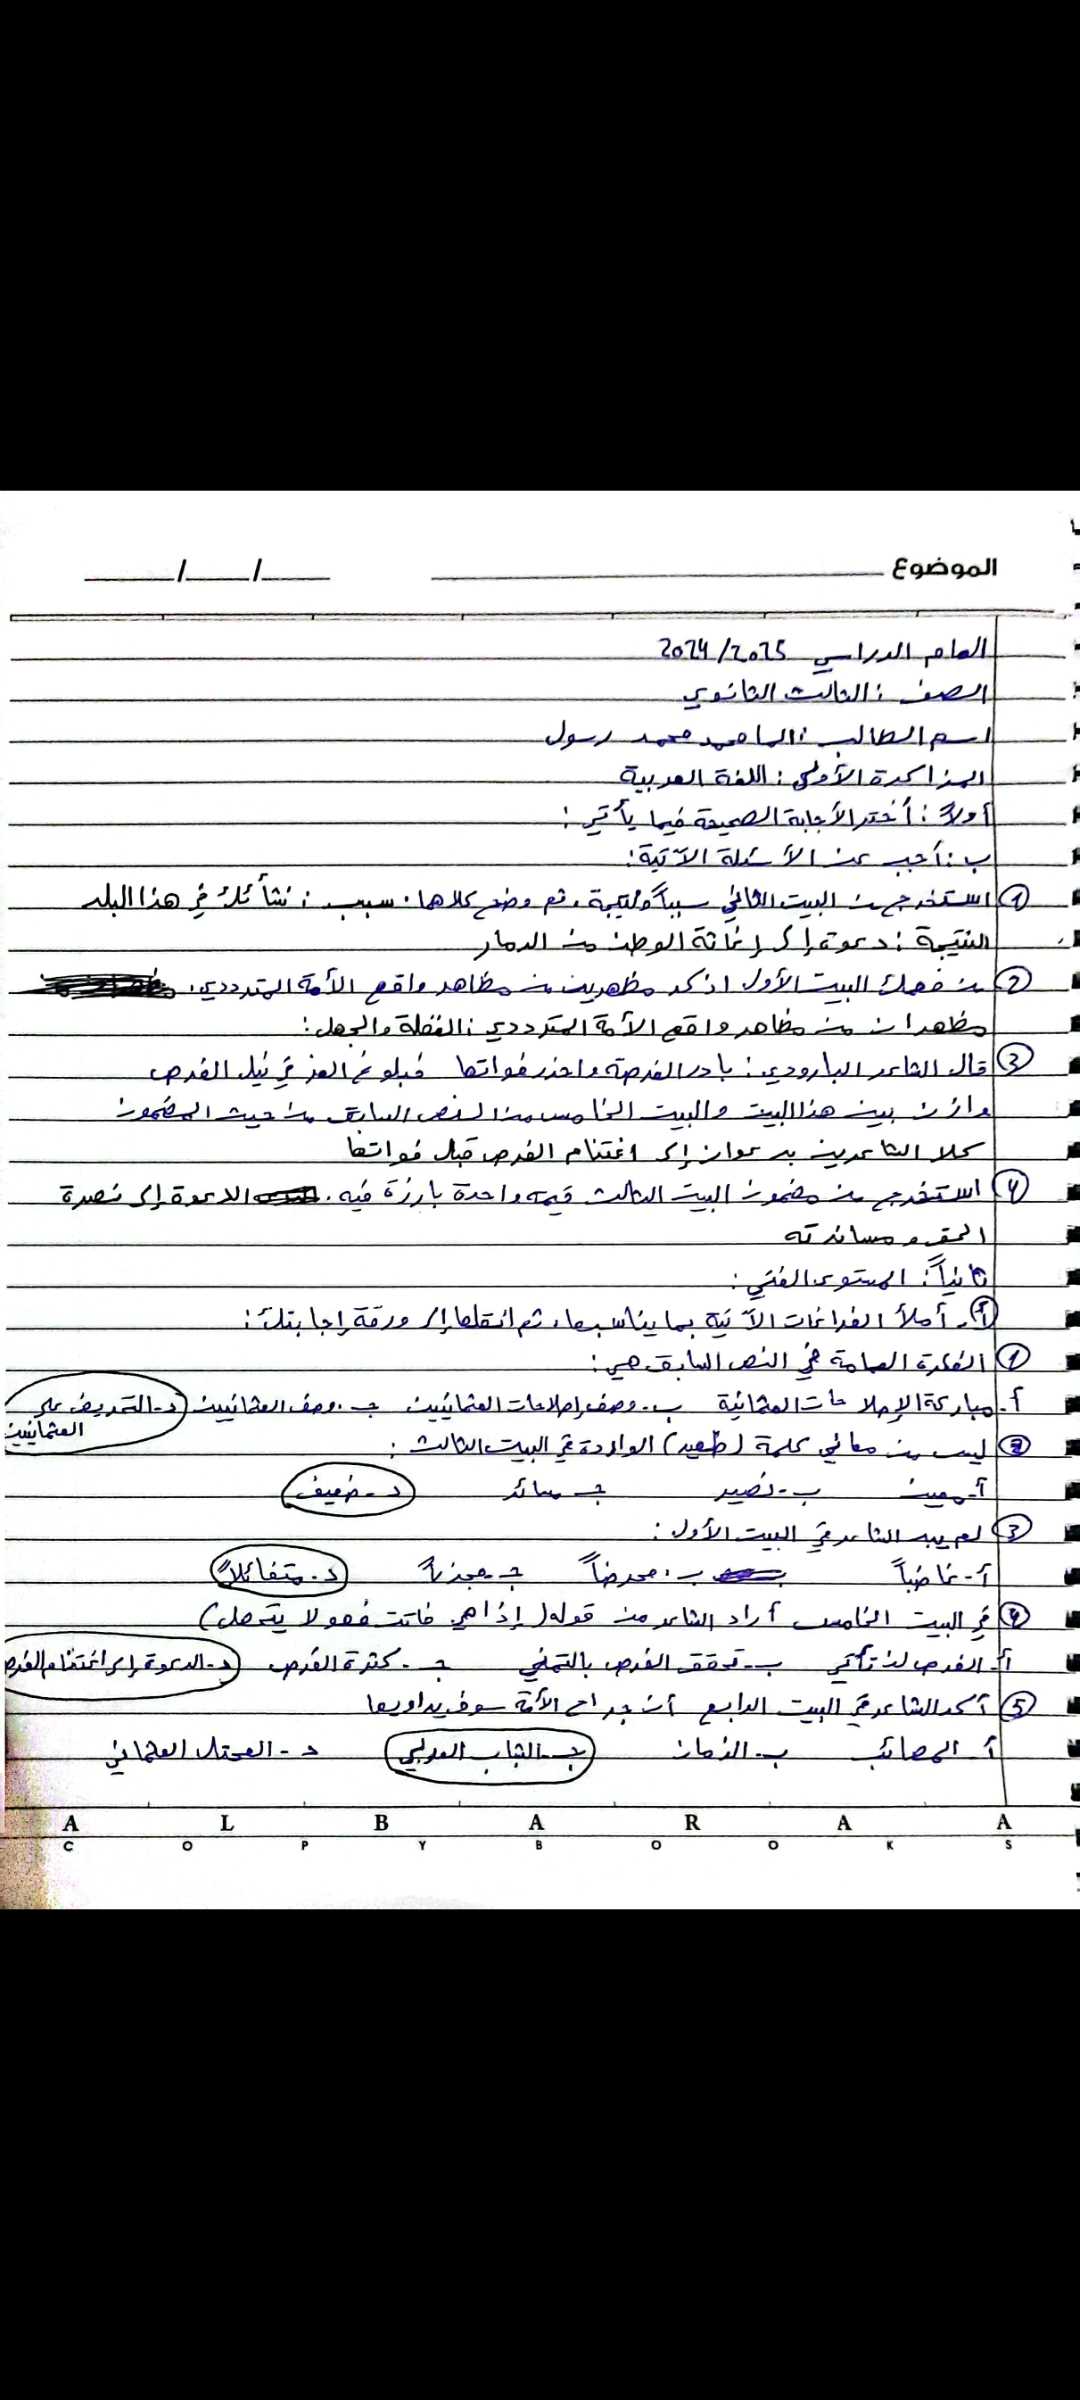 الموضوع ____/____/____
العام الدراسي 2024/2025
الصف : الثالث الثانوي
اسم الطالب : محمد رسول
المذاكرة الأولى : اللغة العربية
أولاً : أختر الأجابة الصحيحة فيما يأتي :
ب : أجب عن الأسئلة الآتية :
① استخرج من البيت الثاني سبباً ونتيجة ، ثم وضح كلاها . سبب : نشأ في هذا البلد
النتيجة : دعوة إلى إغاثة الوطن من الدمار
② من فهمك البيت الأول اذكر مظهرين من مظاهر واقع الأمة المتردي .
مظهران من مظاهر واقع الأمة المترددي : الغفلة والجهل :
③ قال الشاعر البارودي : بادر الفرصة واحذر فواتها فبلوغ العز في نيل الفرص
وازن بين هذا البيت والبيت الخامس من النص السابق من حيث المضمون
كلا الشاعرين يدعوان إلى اغتنام الفرص قبل فواتها
④ استخرج من مضمون البيت الثالث قيمه واحدة بارزة فيه . الدعوة إلى نصرة
الحق و مساندته
ثانياً : المستوى الفني :
أ . أملأ الفراغات الآتية بما يناسبها ، ثم انقلها إلى ورقة إجابتك :
① الفكرة العامة في النص السابق هي :
أ . مباركة الإصلاحات العثمانية ب . وصف إصلاحات العثمانيين جـ . وصف العثمانيين د - التحريض على
العثمانيين
② ليس من معاني كلمة ( ظهير ) الواردة في البيت الثالث :
أ - معين ب - نصير جـ - سائد د - ضعيف
③ لم يبد الشاعر في البيت الأول :
أ - غاضباً ب . محرضاً جـ - محذراً د . متفائلاً
④ في البيت الخامس أراد الشاعر من قوله ( إذا هي فاتت فهو لا يتمهل )
أ - الفرص لن تأتي ب - تحقق الفرص بالتمني جـ - كثرة الفرص د - الدعوة إلى اغتنام الفرص
⑤ أكد الشاعر في البيت الرابع أن جراح الأمة سوف يداويها
أ - المصائب ب - الزمان جـ - الشباب العربي د - المحتل العثماني
A L B A R A A
C O P Y B O O K S